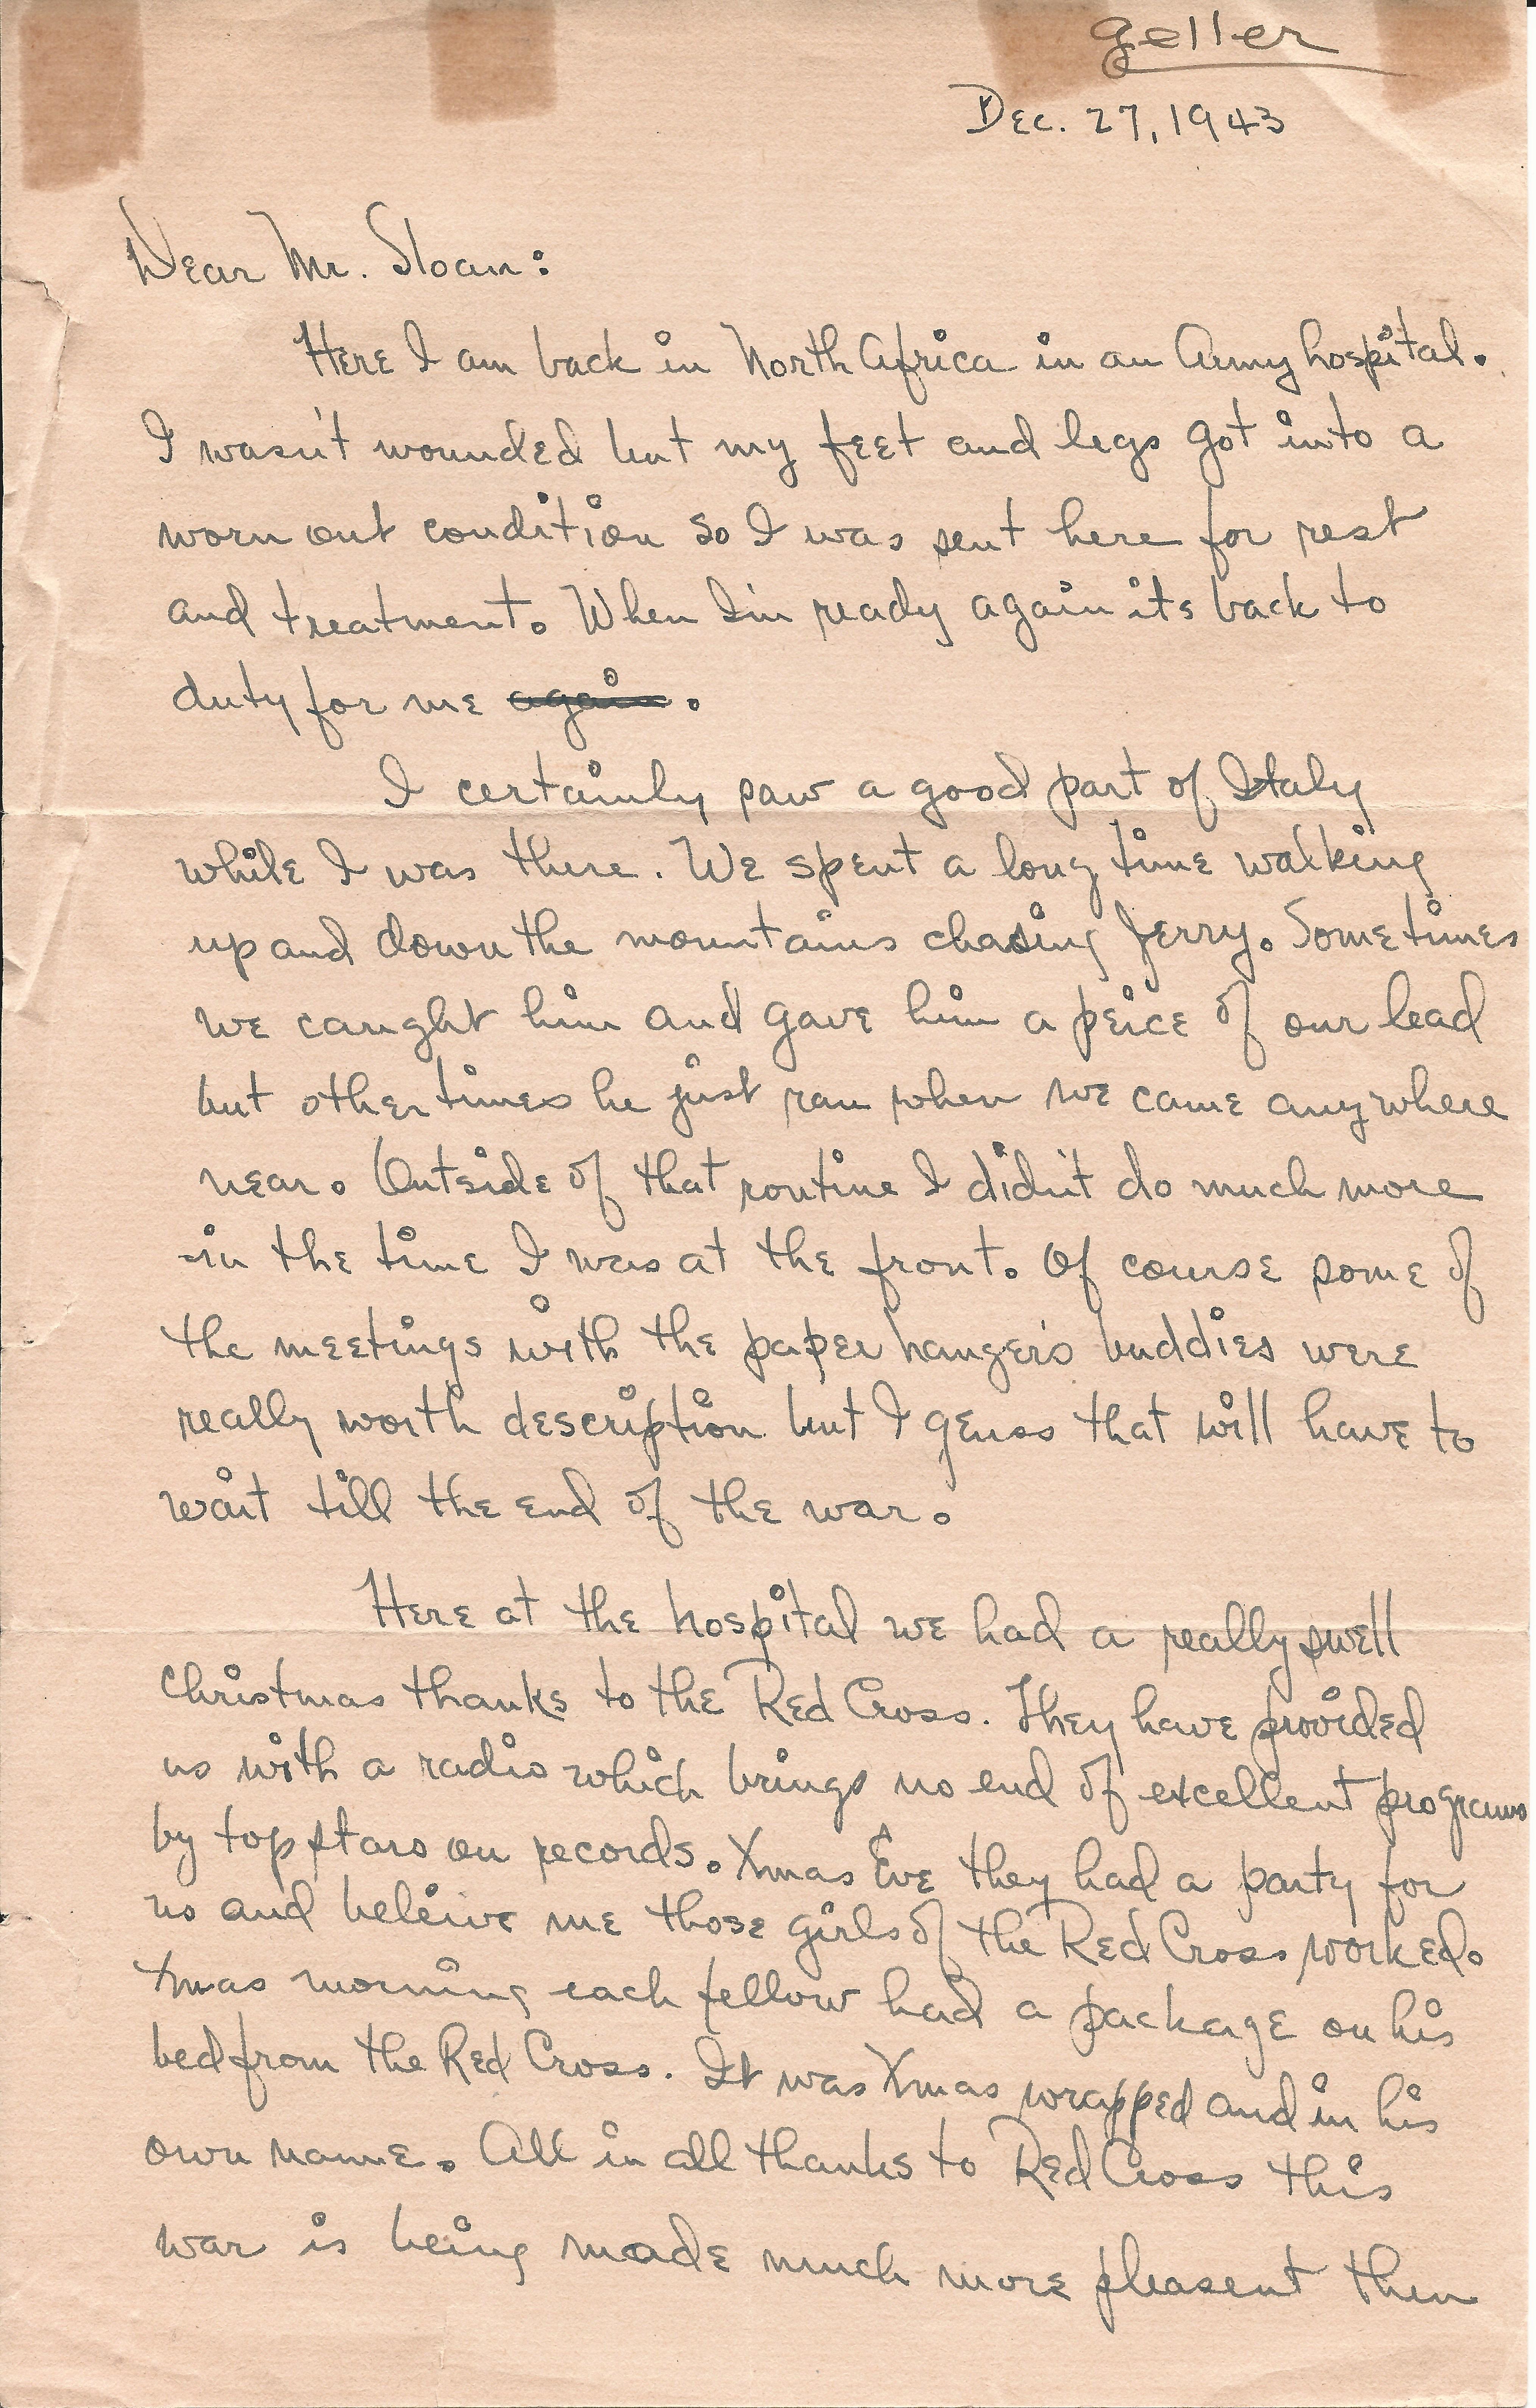 Geller
Dec. 27, 1943
Dear Mr. Sloan:
Here I am back in North Africa in an Army hospital.
I wasn't wounded but my feet and legs got into a
worn out condition so I was sent here for rest
and treatment. When I'm ready again its back to
duty for me again.
I certainly saw a good part of Italy
while I was there. We spent a long time walking
up and down the mountains chasing Jerry. Sometimes
we caught him and gave him a peice of our lead
but other times he just ran when we came anywhere
near. Outside of that routine I didn't do much more
in the time I was at the front. Of course some of
the meetings with the paper hanger's buddies were
really worth description but I guess that will have to
wait till the end of the war.
Here at the hospital we had a really swell
Christmas thanks to the Red Cross. They have provided
us with a radio which brings no end of excellent programs
by top stars on records. Xmas Eve they had a party for
us and beleive me those girls of the Red Cross worked.
Xmas morning each fellow had a package on his
bed from the Red Cross. It was Xmas wrapped and in his
own name. All in all thanks to Red Cross this
war is being made much more pleasent then